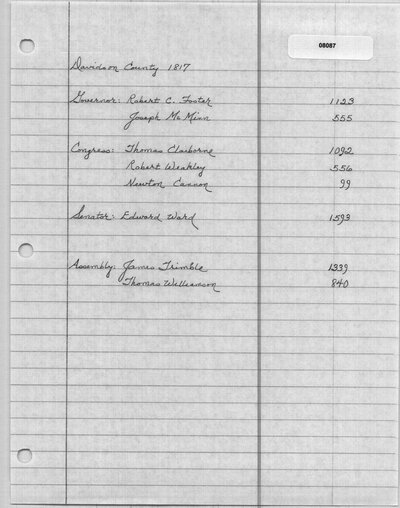 08087
Davidson County 1817
Governor: Robert C. Foster 1123
Joseph McMinn 555
Congress: Thomas Claiborne 1092
Robert Weakley 556
Newton Cannon 99
Senator: Edward Ward 1593
Assembly: James Trimble 1339
Thomas Williamson 840